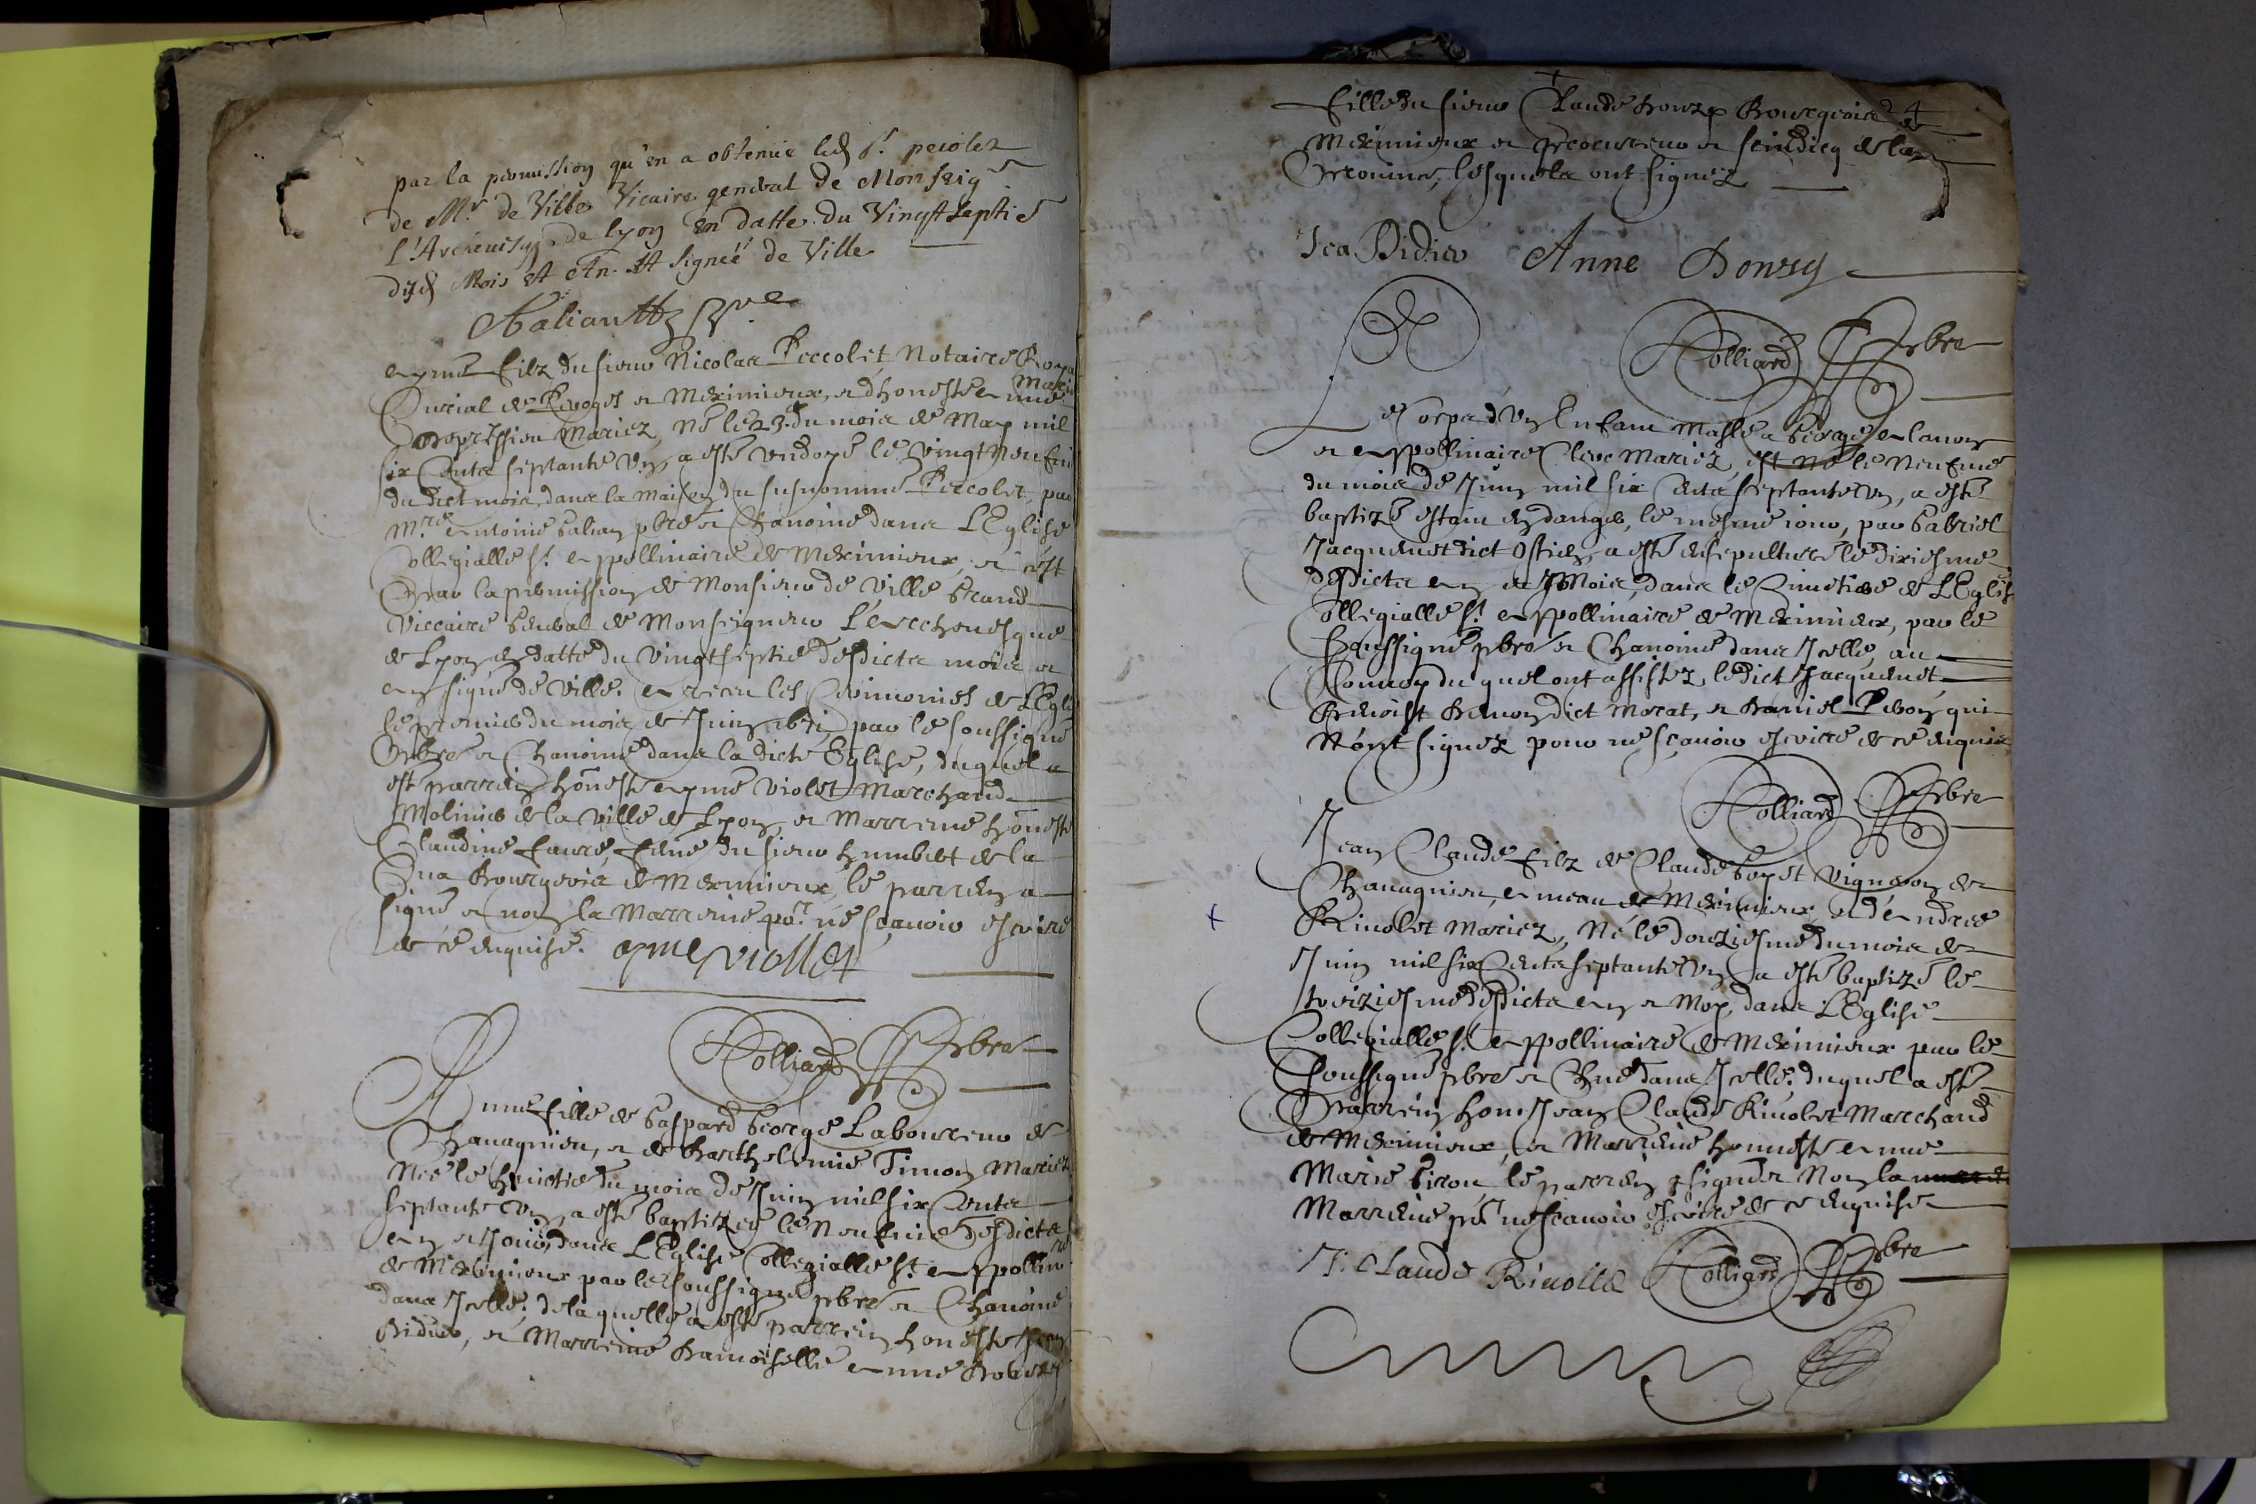 par la permission qu'en a obtenue led Sr. perolet
de Mr. de Ville Vicaire general de Monseigr
L'Archeuesque de lyon en datte du Vingt septie
dud Mois et An. et signéé de Ville
Aymé filz du sieur Nicolas Pecolet Notaire Roya
Curial de Peroges et Meximieux, et d'honeste Anne Marie
mariez, né le 23. du mois de May mil
six Cents septante Vn, a esté ondoyé le vingt Neufui
du dict mois, dans la maison du susnommé Pecolet, par
Mre. Antoine balian pbre et Chanoine dans L'Eglise
Collegialle St. Appollinaire de Meximieux, et c'est
par la permission de Monsieur de Ville Grand
Viccaire General de Monseigneur L'Archeuesque
de Lyon en datte du Vingtseptie desdicts mois et
an signé de Ville. A receu les Ceremonies de L'Egli
le premier du mois de Juin par le soussigné
pbre et Chanoine dans la dicte Eglise, duquel a
esté parrein honeste Aymé Violet Marchand
Molinier de la Ville de Lyon, et Marreine honeste
Claudine faure, feme du sieur humbert de la
Bourgeois de Meximieux, le parrein a
signé et non la Marreine por. ne sçauoir escrire
de ce enquise. ayme viollet
Rolliard Pbre
Anne fille de Gaspard George Laboureur de
Chauagnieu, et de Barthelemie Timon Mariez
Née le huictie du moix de Juin mil six Cents
septante Vn, a esté baptizée le Neufuie desdicts
an et Mois, dans L'Eglise Collegialle St. Appollinre
de Meximieux par le soussigné pbre et Chanoine
dans Jcelle, de la quelle a esté parrein honeste Jean
Didier, et Marreine Damoiselle Anne
24
fille du sieur Claude Bourgeois de
Meximieux et procureur et scindicq de la
Prouince, lesquels ont signez
Jea Didier Anne
Rolliard Pbre
Le Corps d'Vn Enfant Masle a George
et Appollinaire Clerc Mariez, est né le Neufuie
du mois de Juin mil six Cents septante Vn, a esté
baptizé estant en danger, le mesme iour, par Gabriel
Jacquemet dict Ostien, a esté ensepulturé le dixiesme
desdicts an et Mois, dans le Cimetiere de L'Eglis
Collegialle St. Appollinaire de Meximieux, par le
Soussigné pbre et Chanoine dans Jcelle, au
Conuoy du quel ont assistez, ledict Jacquemet
Benoist dict Morat, et Daniel Peron qui
N'ont signez pour ne sçauoir escrire de ce enquis
Rolliard Pbre
Jean Claude filz de Claude Goyet Vigneron de
Chauagnieu, Ameau de Meximieux, et d'Andrée
Riuolet Mariez, Né le douziesme du mois de
Juin mil six Cents septante Vn a esté baptizé le
treiziesme desdicts an et Moy, dans L'Eglise
Collegialle St. Appollinaire de Meximieux par le
Soussigné pbre et Chne dans Jcelle. duquel a esté
Parrein hon. Jean Claude Riuolet Marchand
de Meximieux, et Marreine honneste Anne
Marie le parrein a signé et Non la
Marreine por. ne scauoir escrire de ce enquise
J. Claude Riuolle Rolliard Pbre